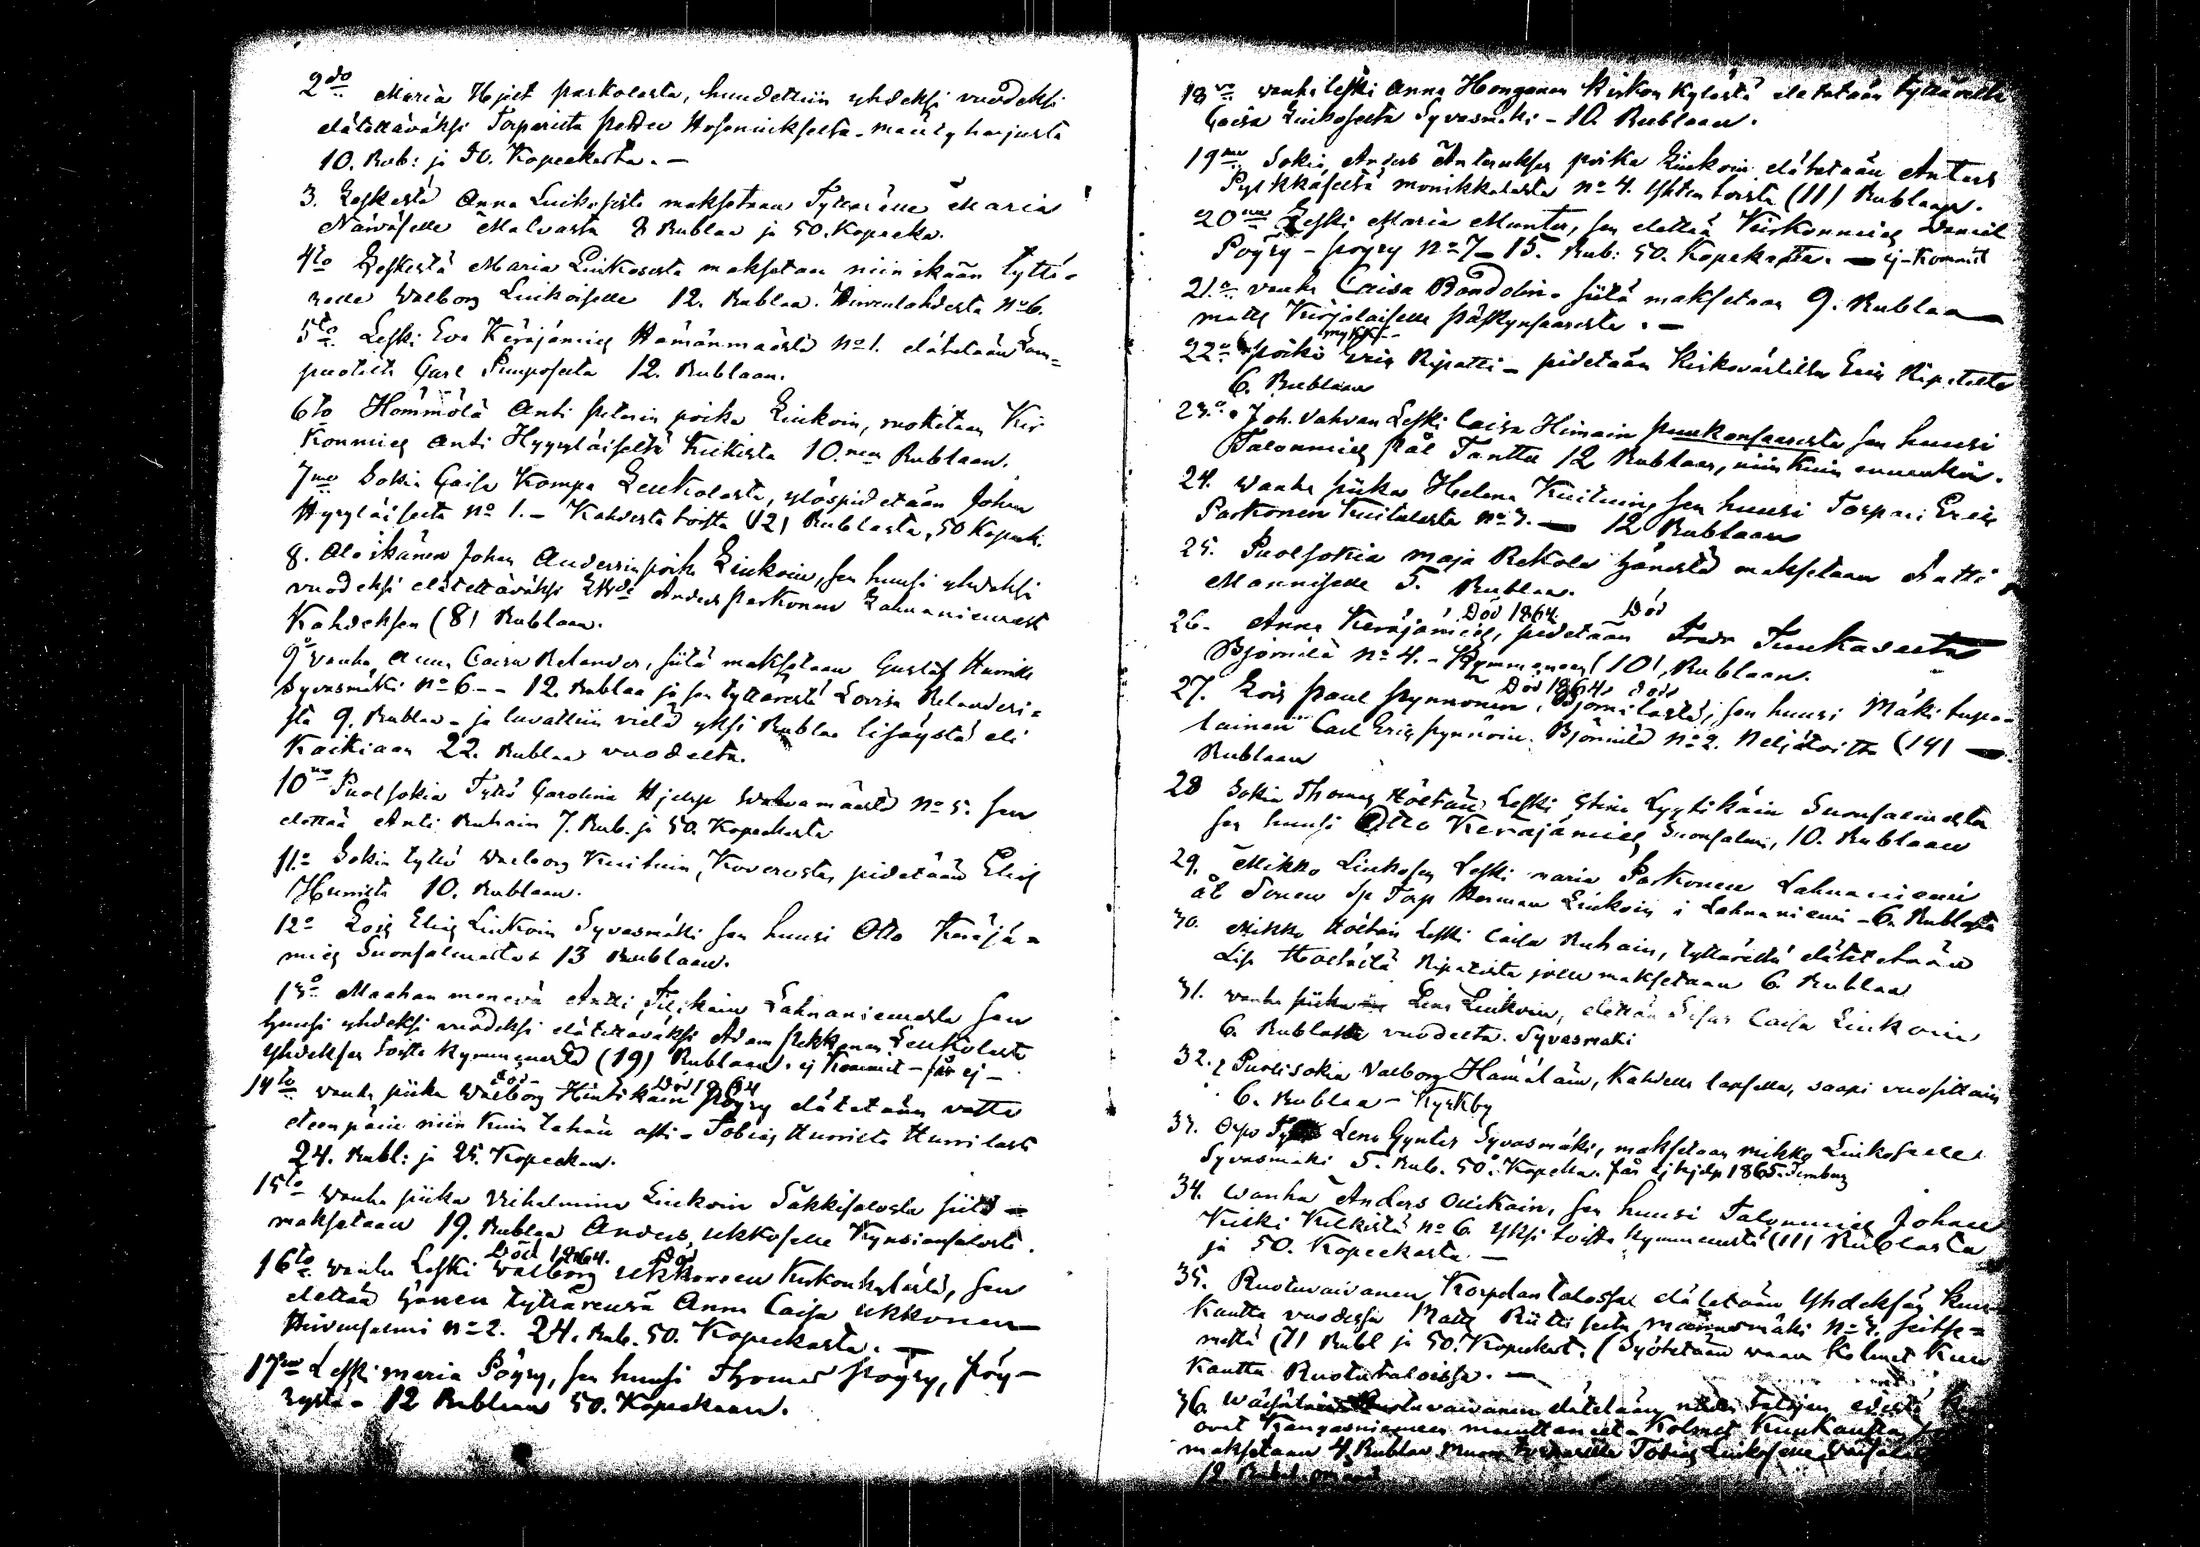 2do Maria Hjelt paskolasta, huudettiin yhdeksi vuodeksi
elätettäväksi Torparista Petter
10. Rub: ja 50. Kopeekasta. —
3. Leskestä Anna Liukosista maksetaan Tyttärelle Maria
Närväselle Malvasta 8 Rublaa ja 50. Kopeeka.
4to Leskestä Maria Liukosesta maksetaan niin ikään tyttä-
relle Walborg Liukoiselle 12. Rublaa. Hirvenlahdesta No 6.
5to Leski Eva Keräjämies Hämänmäästä No 1. elätetään Lam-
puotilta Carl Pimposesta 12. Rublaan.
6to Hömmölä Anti peterin poika Liukoin, ruokitaan Kir
konmies Anti Hyyryläiseltä Kiikista 10.nen Rublaan.
7mo Sokia Caisa Kompa Leukolasta, ylöspidetään Johan
Hyryläisesta No 1. – Kahdesta toista (12) Rublasta, 50 Kopeek.
8. Johan Andersinpoika Liukoin, sen huusi yhdeksi
vuodeksi elätettäväksi Anders Paskonen Lahnaniemest
Kahdeksan (8) Rublaan.
9o Wanha Anna Caisa Relander, siitä maksetaan Gustaf Hurrille
Syvasmäki No 6 - - 12. Rublaa ja sen tyttärestä Lovisa Relanderi-
stä 9. Rublaa – ja luvattiin vielä yksi Rublaa lisäystä eli
Kaikiaan 22. Rublaa vuodelta.
10no Puolsokia Tyttö Carolina Hjelp No 5. sen
elättää Anti Ruhain 7. Rub. ja 50. Kopeekasta
11o Sokia tyttö Walborg Kuituin, Koverosta, pidetään Elias
Hurrista 10. Rublaan.
12o Lois Elias Liukoin Syvasmäki sen huusi Otto Keräjä-
mies Suonsalmesta 13 Rublaan.
13o Maahan menevä Antti Lahnaniemesta sen
huusi yhdeksi vuodeksi elätettäväksi Adam Pekkanen Leukolasta
yhdeksän toista kymmenestä (19) Rublaan. ej Kommit – får ej –
Död – Död 1864
14to wanha piika Walborg Hintikain Pöyry elätetään vasta
eteenpäin niin kuin tähän asti – Tobias Hurrista Hurrilast
24. Rubl: ja 25. Kopeekan.
15to Wanha piika Vilhelmina Liukoin Säkkisalosta siitä –
maksetaan 19. Rublaa Anders Ukkoselle Kynsiensalosta.
Död 1864. Död
16to Wanha Leski Walborg Ukkonen Kirkonkylästä, sen
elättää hänen tyttärensä Anna Caisa Ukkonen
Hirvensalmi No 2. 24. Rub. 50. Kopeekasta. —
17mo Leski maria Pöyry, sen huusi Thomas Pöyry, Pöy-
rystä – 12 Rublaan 50. Kopeekaan.
18vo wanha leski Anna Honganen Kirkon Kylästä eletetään tyttäreltä
Caisa Liukosesta Syvasmäki – 10. Rublaan.
19no Sokia Anders Anteruksen poika Liukoin elätetään Anters
Pylkkäseltä monikkalasta No 4. Yhten toista (11) Rublaan.
20no Leski Maria Manter, sen elättää Kirkonmies Daniel
Pöyry – pöyry No 7 – 15. Rub: 50. Kopekasta. — ej – Kommit
21.o vanha Caisa Bondolin. siitä maksetaan 9. Rublaa —
matts Kirjalaiselle —
22o poika Erig Ripatti – pidetään Kirkovärtiltä Erig Ripatilta
6. Rublaan
23.o Joh. Vahvan Leski Caisa Himain puukonsaaresta sen huusi
Talonmies Pål Tanttu 12 Rublaan, niin kuin ennenkin.
24. wanha piika Helena Kuituin, sen huusi Torpari Erig
Paskonen Kuitulasta No 3. — 12 Rublaan
25. Puolsokia maja Rekola hänestä maksetaan Matti
Manniselle 5. Rublaa.
Död 1864. Död
26. Anna Keräjämies, pidetään Tuukaseelta
Björnilä No 4. – Kymmeneen (10) Rublaan.
Död 1864. död
27. Lois Paul Pynnönen, Björnilästä, sen huusi Mäkitupa-
lainen Carl Erig Pynnöin. Björnilä No 2. Neljätoista (14) —
Rublaan
28 Sokia Thomas Leski Stina Lyytikäin Suonsalmelta
sen huusi Otto Keräjämies Suonsalmi, 10. Rublaan
29. Mikko Liukosen Leski maria Paskonen Lahnaniemi
åt Sonen Torp Herman Liukoin i Lahnaniemi – 6. Rublasta
30. Mikko Leski Caisa Ruhain, tyttäreltä elätetetään
Lisa Ripatista jolle maksetaan 6. Rublaa
31. wanha piika Lena Liukoin, elättää Sisar Caisa Liukoin
6. Rublasta vuodelta. Syvasmäki
32. Puolisokia Valborg Hämäläin, Kahdella lapsella, saapi vuosittain
6. Rublaa – Kyrkby
33. Orpo Lena Gynter Syvasmäki, maksetaan mikko Liukoselle
Syvasmäki 5. Rub. 50. Kopekka. får ej hjelp 1865.
34. wanha Anders Outikain, sen huusi Talonmies Johan
Kiiki Kilkistä No 6. Yksi toista kymmenestä (11) Rublasta
ja 50. Kopeekasta. —
35. Ruotuvaivanen, talossa elätetään Yhdeksän kuu-
kautta vuodessa Matts No 3. seitse-
mestä (7) Rubl ja 50. Kopeekast. (Syötetään vaan Kolmet Kuu
kautta Ruotutaloissa. —
36. elätetään talojen edestä
ovat Kangasniemeen muuttaneet – Kolmet Kuukautta
maksetaan 4 Rublaa Tobias Liukoselle
12